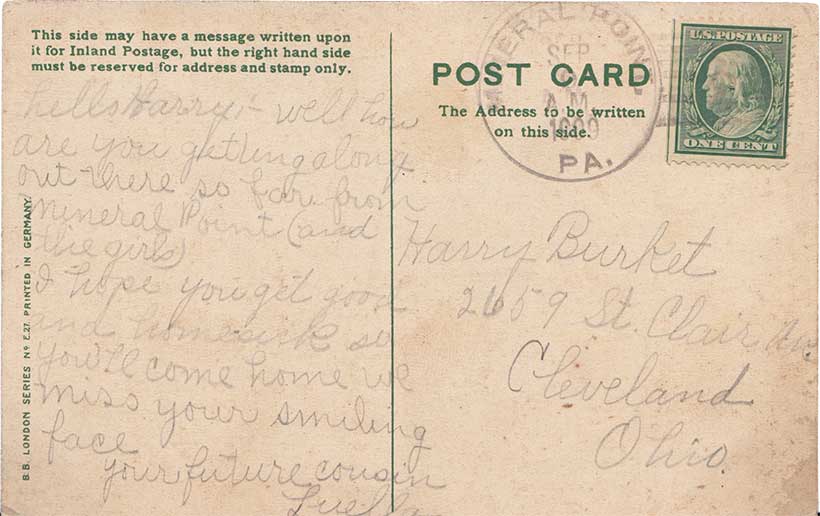 This side may have a message written upon
it for Inland Postage, but the right hand side
must be reserved for address and stamp only.
hello Harry:- well how
are you getting along
out there so far from
Mineral Point (and
the girls)
I hope you get good
and homesick so
you'll come home we
miss your smiling
face
your future cousin
Luella
B.B. LONDON SERIES No E.27. PRINTED IN GERMANY.
MINERAL POINT,
SEP
A.M.
1909
PA.
POST CARD
The Address to be written
on this side.
U.S. POSTAGE
ONE CENT
Harry Burket
2659 St. Clair Av.
Cleveland
Ohio.